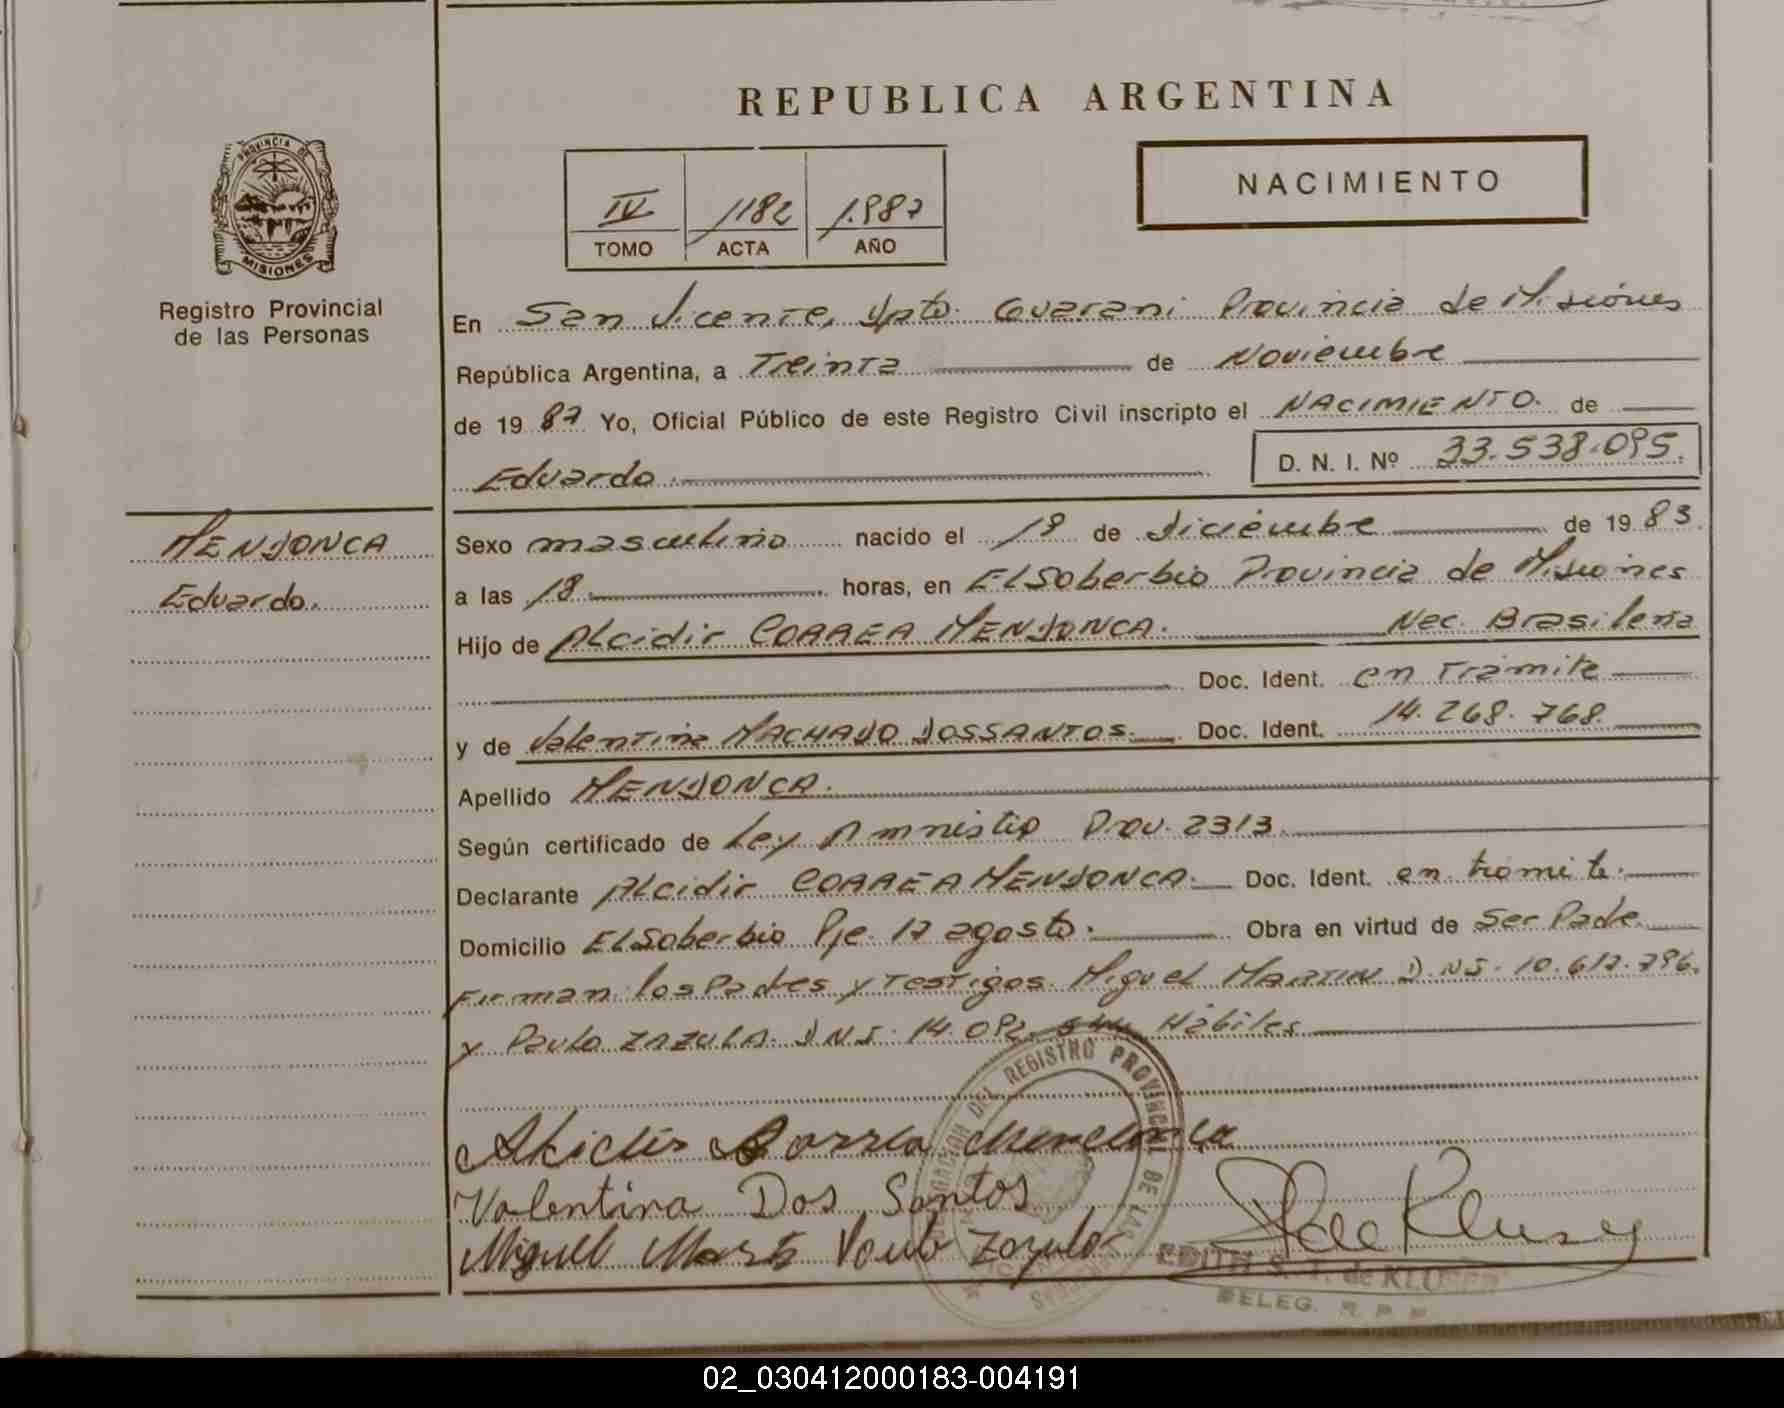 REPUBLICA ARGENTINA
PROVINCIA DE
MISIONES
Registro Provincial
de las Personas
IV 1182 1.987
TOMO ACTA AÑO
NACIMIENTO
En San Vicente, Dpto. Guarani Provincia de Misiones
República Argentina, a Treinta de Noviembre
de 1987 Yo, Oficial Público de este Registro Civil inscripto el NACIMIENTO. de
Eduardo. D. N. I. Nº 33.538.095.
MENDONCA
Eduardo.
Sexo masculino nacido el 19 de Diciembre de 1983.
a las 18 horas, en El Soberbio Provincia de Misiones
Hijo de Alcidir CORREA MENDONCA. Nac. Brasileña
Doc. Ident. en Tramite
y de Valentina MACHADO DOSSANTOS. Doc. Ident. 14.268.768.
Apellido MENDONCA.
Según certificado de Ley Amnistia Prov. 2313.
Declarante Alcidir CORREA MENDONCA. Doc. Ident. en tramite.
Domicilio El Soberbio Pje. 17 agosto. Obra en virtud de Ser Padre
Firman los Padres y Testigos. Miguel MARTIN D.N.I. 10.617.796.
y Paulo ZAZULA. D N I. 14.092. Habiles
DELEGACION DEL REGISTRO PROVINCIAL DE LAS PERSONAS
Alcidir Correa Mendonca
Valentina Dos Santos
Miguel Paulo Zazula
de Klusey
EDITH S. T. de KLUSEY
DELEG. R. P. P.
02_030412000183-004191